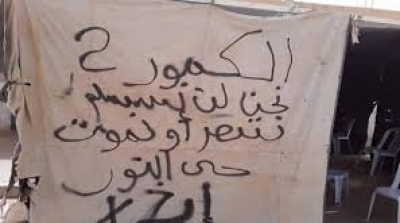 الكمور 2
نحن لن نستسلم
ننتصر أو نموت
حي النور